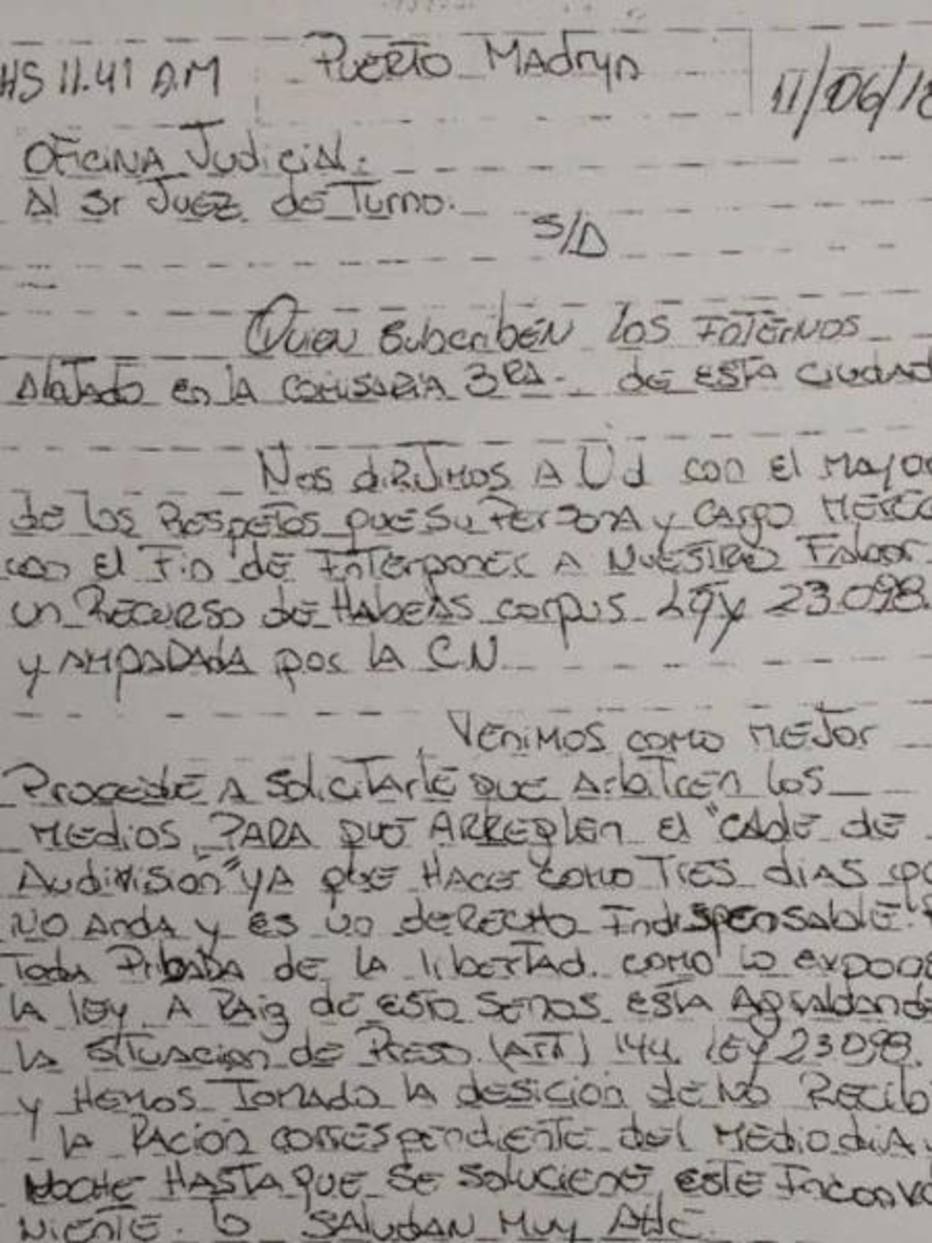 HS 11.41 A.M Puerto Madryn 11/06/18
Oficina Judicial:
Al Sr Juez de Turno.
S/D
Quien Subscriben los Internos
Alojado en la Comisaria 3ra. de esta ciudad
Nos dirijimos A Ud con el Mayor
de los Respetos que su Persona y Cargo Merece
con el Fin de Interponer A Nuestro Fabor
un Recurso de Habeas corpus Ley 23.098.
y AMPADADA por la C.N.
Venimos como mejor
Procede A Solicitarle que Arbitren los
Medios PARA que ARREGLEN el "CABLE DE
Audivision" YA que HACE COMO Tres dias que
NO Anda y es un derecho Indispensable
Toda Pribada de la libertad. como lo expone
la ley A Raiz de esto Senos esta Agrabando
la situacion de Preso. (Art) 144 LEY 23098.
y Hemos Tomado la desicion de No Recibir
la Racion correspondiente del Mediodia
Noche HASTA QUE SE Solucione este Inconve
niente. Lo SALUDAN Muy Atte.